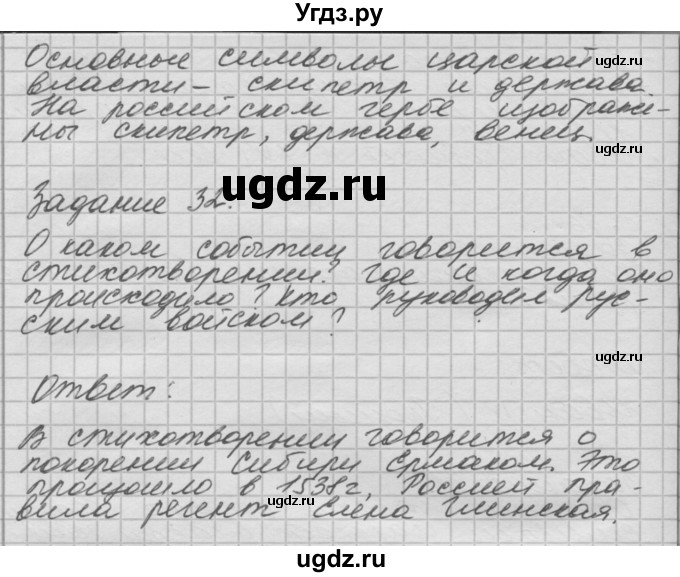 Угдз.ру
Основные символы царской
власти - скипетр и держава.
На российском гербе изображе-
ны скипетр, держава, венец.
ugdz.ru
ugdz.ru
ugdz.ru
Задание 32.
ugdz.ru
О каком событии говорится в
стихотворении? Где и когда оно
происходило? Кто руководил рус-
ским войском?
ugdz.ru
Ответ:
ugdz.ru
В стихотворении говорится о
покорении Сибири Ермаком. Это
произошло в 1538г, Россией пра-
вила регент Елена Глинская.
ugdz.ru
ugdz.ru